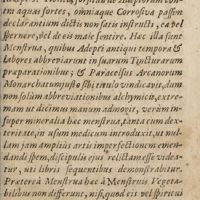 ta aquas fortes, omniaque Corrosiva passim
declarantium dictis non satis instructi, ea vel
spernere, vel de eis male sentire. Hæc illa sunt
Menstrua, quibus Adepti antiqui tempora &
labores abbreviarunt in suarum Tincturarum
præparationibus; & Paracelsus Arcanorum
Monarcha tum justo sibi titulo vindicavit, dum
non solum abbreviationibus alchymicis, extre-
mam ut dicimus manum admovit, verum in-
super mineralia hæc menstrua, tanta cum dex-
teritate, in usum medicum introduxit, ut nul-
lam jam amplius artis imperfectionem emen-
dandi spem, discipulis ejus relictam esse videa-
tur, uti libris sequentibus demonstrabitur.
Præterea Menstrua hæc à Menstruis Vegeta-
bilibus non differunt, nisi, quod eis vel spiritus